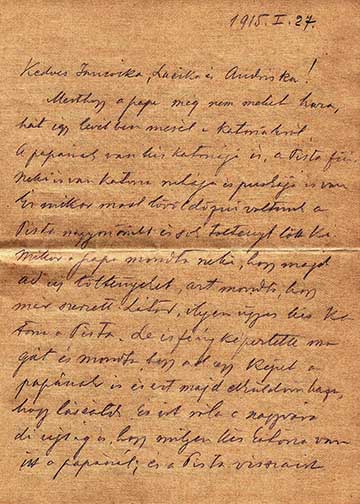 1915. I. 27.
Kedves Jancsika, Lacika és Andriska!
Merthogy a papa még nem mehet haza,
hát így levélben mesél a katonákról.
A papának van kis katonája is, a Pista fiú
Neki is van katona ruhája és puskája is van
És mikor most lőni voltunk a
Pista nagyon örült és sok töltényt lőtt ki.
Mikor a papa mondta neki, hogy majd
ad új töltényeket, azt mondta, hogy
már szerzett látod, ilyen ügyes kis ka
tona a Pista. Le is fényképeztette ma
gát és mondta hogy ad egy képet a
papának is és ezt majd elküldöm haza,
hogy lássátok. És ezt róla a nagyvára
di ujság is, hogy milyen kis katona van
itt a papánál; és a Pista